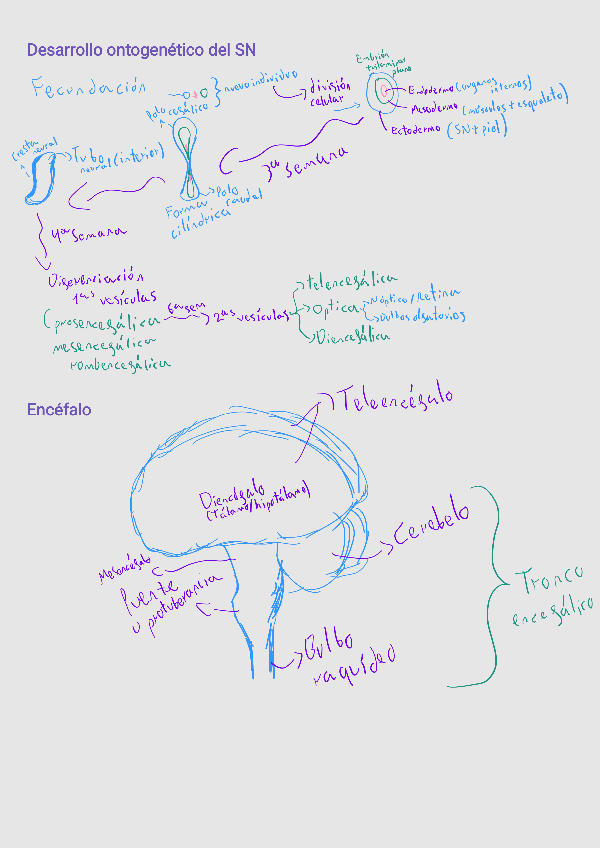 Desarrollo ontogenético del SN
Fecundación
nuevo individuo
división
celular
Embrión
trilaminar
plano
Endodermo (órganos
internos)
Mesodermo (músculos + esqueleto)
Ectodermo (SN + piel)
3ª semana
Polo cefálico
Polo
caudal
Forma
cilíndrica
Cresta
neural
Tubo
neural (interior)
4ª semana
Diferenciación
1ªˢ vesículas
(prosencefálica
mesencefálica
rombencefálica
6ª sem
2ªˢ vesículas
telencefálica
Óptica
N óptico / Retina
Bulbos olfatorios
Diencefálica
Encéfalo
Teleencéfalo
Diencéfalo
(Tálamo/hipotálamo)
Cerebelo
Mesencéfalo
Puente
o protuberancia
Bulbo
raquídeo
Tronco
encefálico